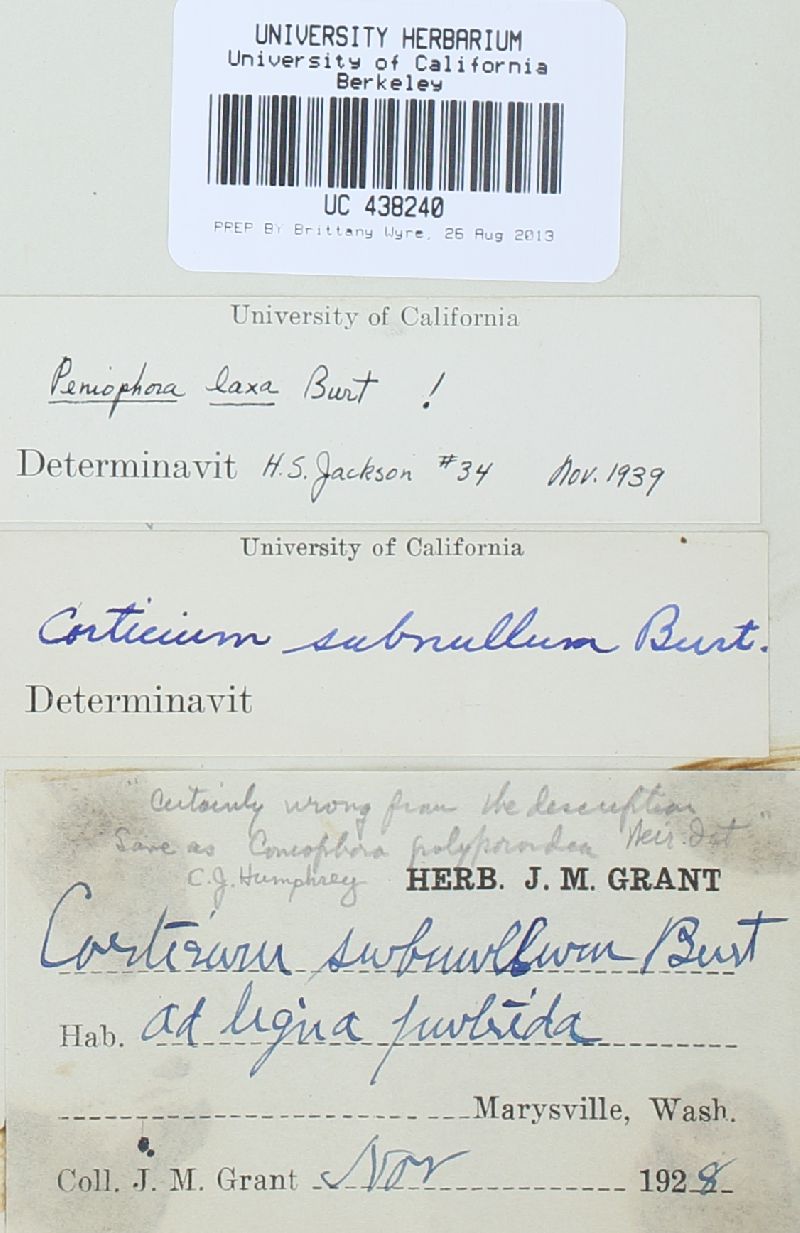 UNIVERSITY HERBARIUM
University of California
Berkeley
UC 438240
PREP BY Brittany Wyre, 26 Aug 2013
University of California
Peniophora laxa Burt !
Determinavit H.S. Jackson #34 Nov. 1939
University of California
Corticium subnullum Burt.
Determinavit
"Certainly wrong from the description
Same as Coniophora polyporoidea
C.J. Humphrey
HERB. J. M. GRANT
Corticium subnullum Burt
Hab. ad ligna putrida
Marysville, Wash.
Coll. J. M. Grant Nov 1928